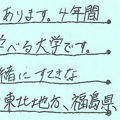 あります。4年間
べる大学です。
緒にすてきな
東北地方、福島県